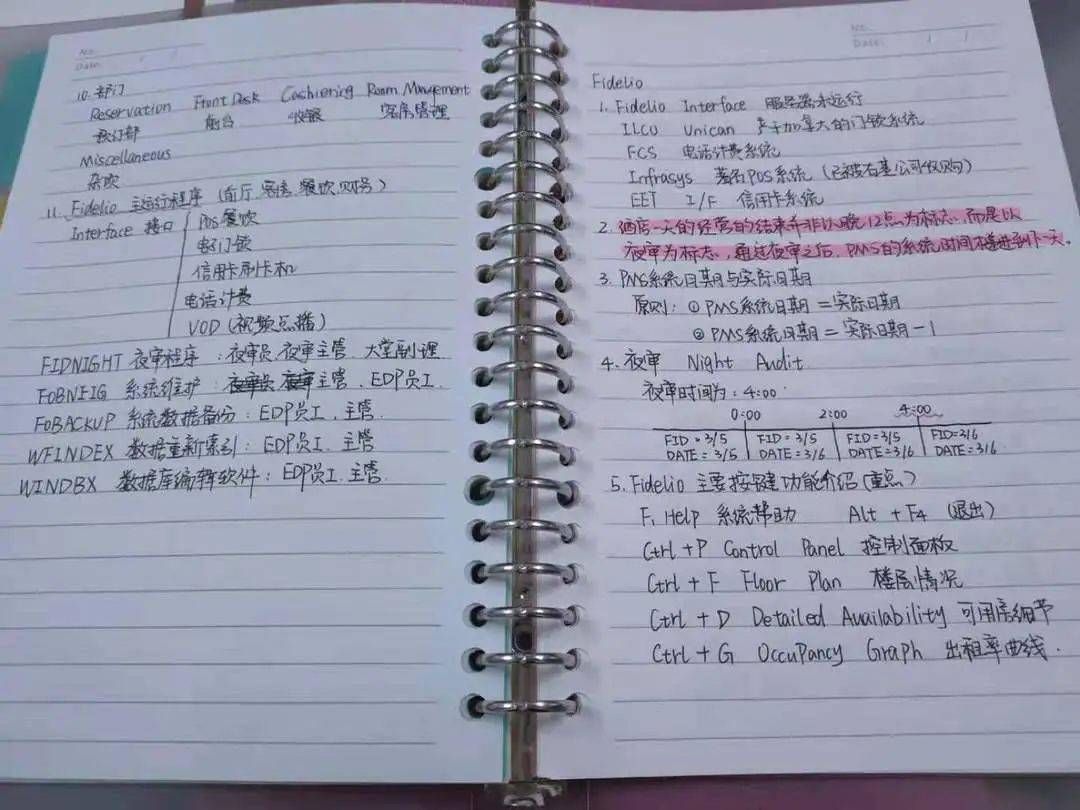 No.
Date / /
10. 部门
Reservation Front Desk Cashiering Room Management
预订部 前台 收银 客房管理
Miscellaneous
杂项
11. Fidelio 运行程序 (前厅、客房、餐饮、财务)
Interface 接口 POS 餐饮
电门锁
信用卡刷卡机
电话计费
VOD (视频点播)
FIDNIGHT 夜审程序 : 夜审员、夜审主管、大堂副理
FOBNFIG 系统维护 : 主管、EDP员工.
FOBACKUP 系统数据备份 : EDP员工、主管.
WFINDEX 数据重新索引 : EDP员工、主管
WINDBX 数据库编辑软件 : EDP员工、主管.
No.
Date / /
Fidelio
1. Fidelio Interface 服务器未运行
ILCO Unican 产于加拿大的门锁系统
FCS 电话计费系统
Infrasys 著名POS系统 (已被石基公司收购)
EET I/F 信用卡系统
2. 酒店一天的经营的结束并非以晚12点为标志,而是以
夜审为标志,通过夜审之后,PMS的系统时间才推进到下一天。
3. PMS系统日期与实际日期
原则: ① PMS系统日期 = 实际日期
② PMS系统日期 = 实际日期 - 1
4. 夜审 Night Audit
夜审时间为: 4:00
0:00 2:00 4:00
FID = 3/5 FID = 3/5 FID = 3/5 FID = 3/6
DATE = 3/5 DATE = 3/6 DATE = 3/6 DATE = 3/6
5. Fidelio 主要按键功能介绍 (重点)
F1 Help 系统帮助 Alt + F4 (退出)
Ctrl + P Control Panel 控制面板
Ctrl + F Floor Plan 楼层情况
Ctrl + D Detailed Availability 可用房细节
Ctrl + G Occupancy Graph 出租率曲线.